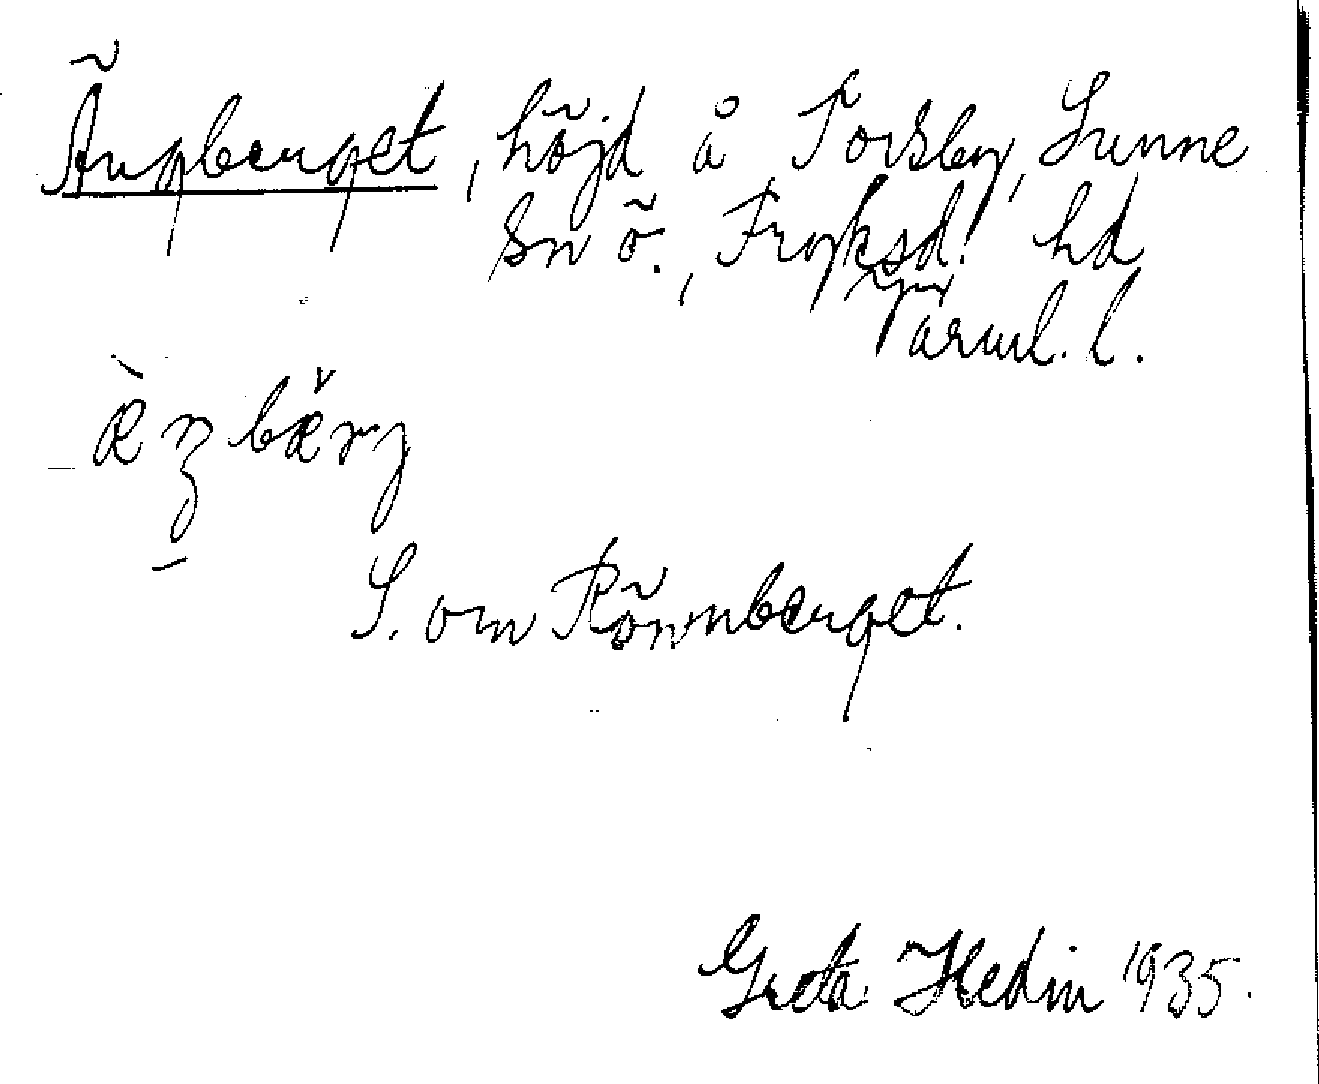 Ängberget, höjd å Torsby, Sunne
sn ö., Fryksd! hd
Värml. l.
S. om Rönnberget.
Greta Hedin 1935.